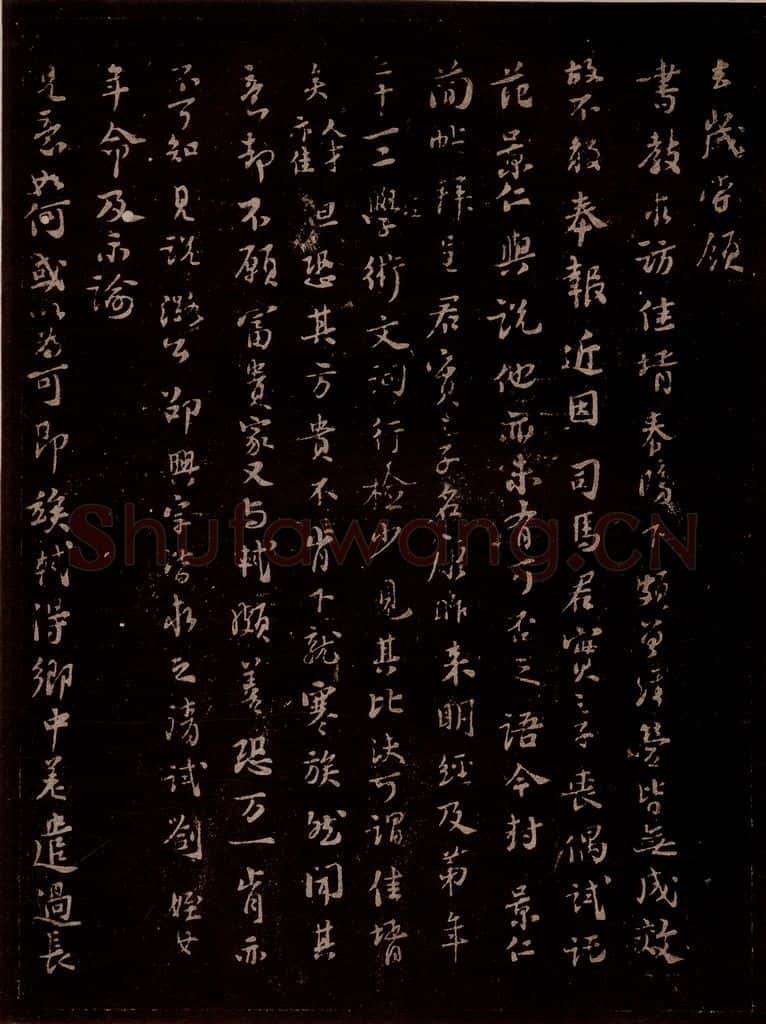 去歲嘗領
書教求訪佳壻奉 下頗曾經營皆無成效
故不敢奉報近因司馬君實之子喪偶試託
范景仁與說他亦未有可否之語今封景仁
簡帖拜呈君實之子名康昨來明經及第年
二十一二學術文詞行檢少見其比決可謂佳壻
矣人才亦佳但恐其方貴不肯下就寒族然聞其
意却不願富貴家又与軾頗善恐万一肯亦
不可知見說潞公邵興宗皆求之請試劉姪女
年命及示諭
見意如何或以為可即 軾得鄉中差遣過長
Shufawang.CN